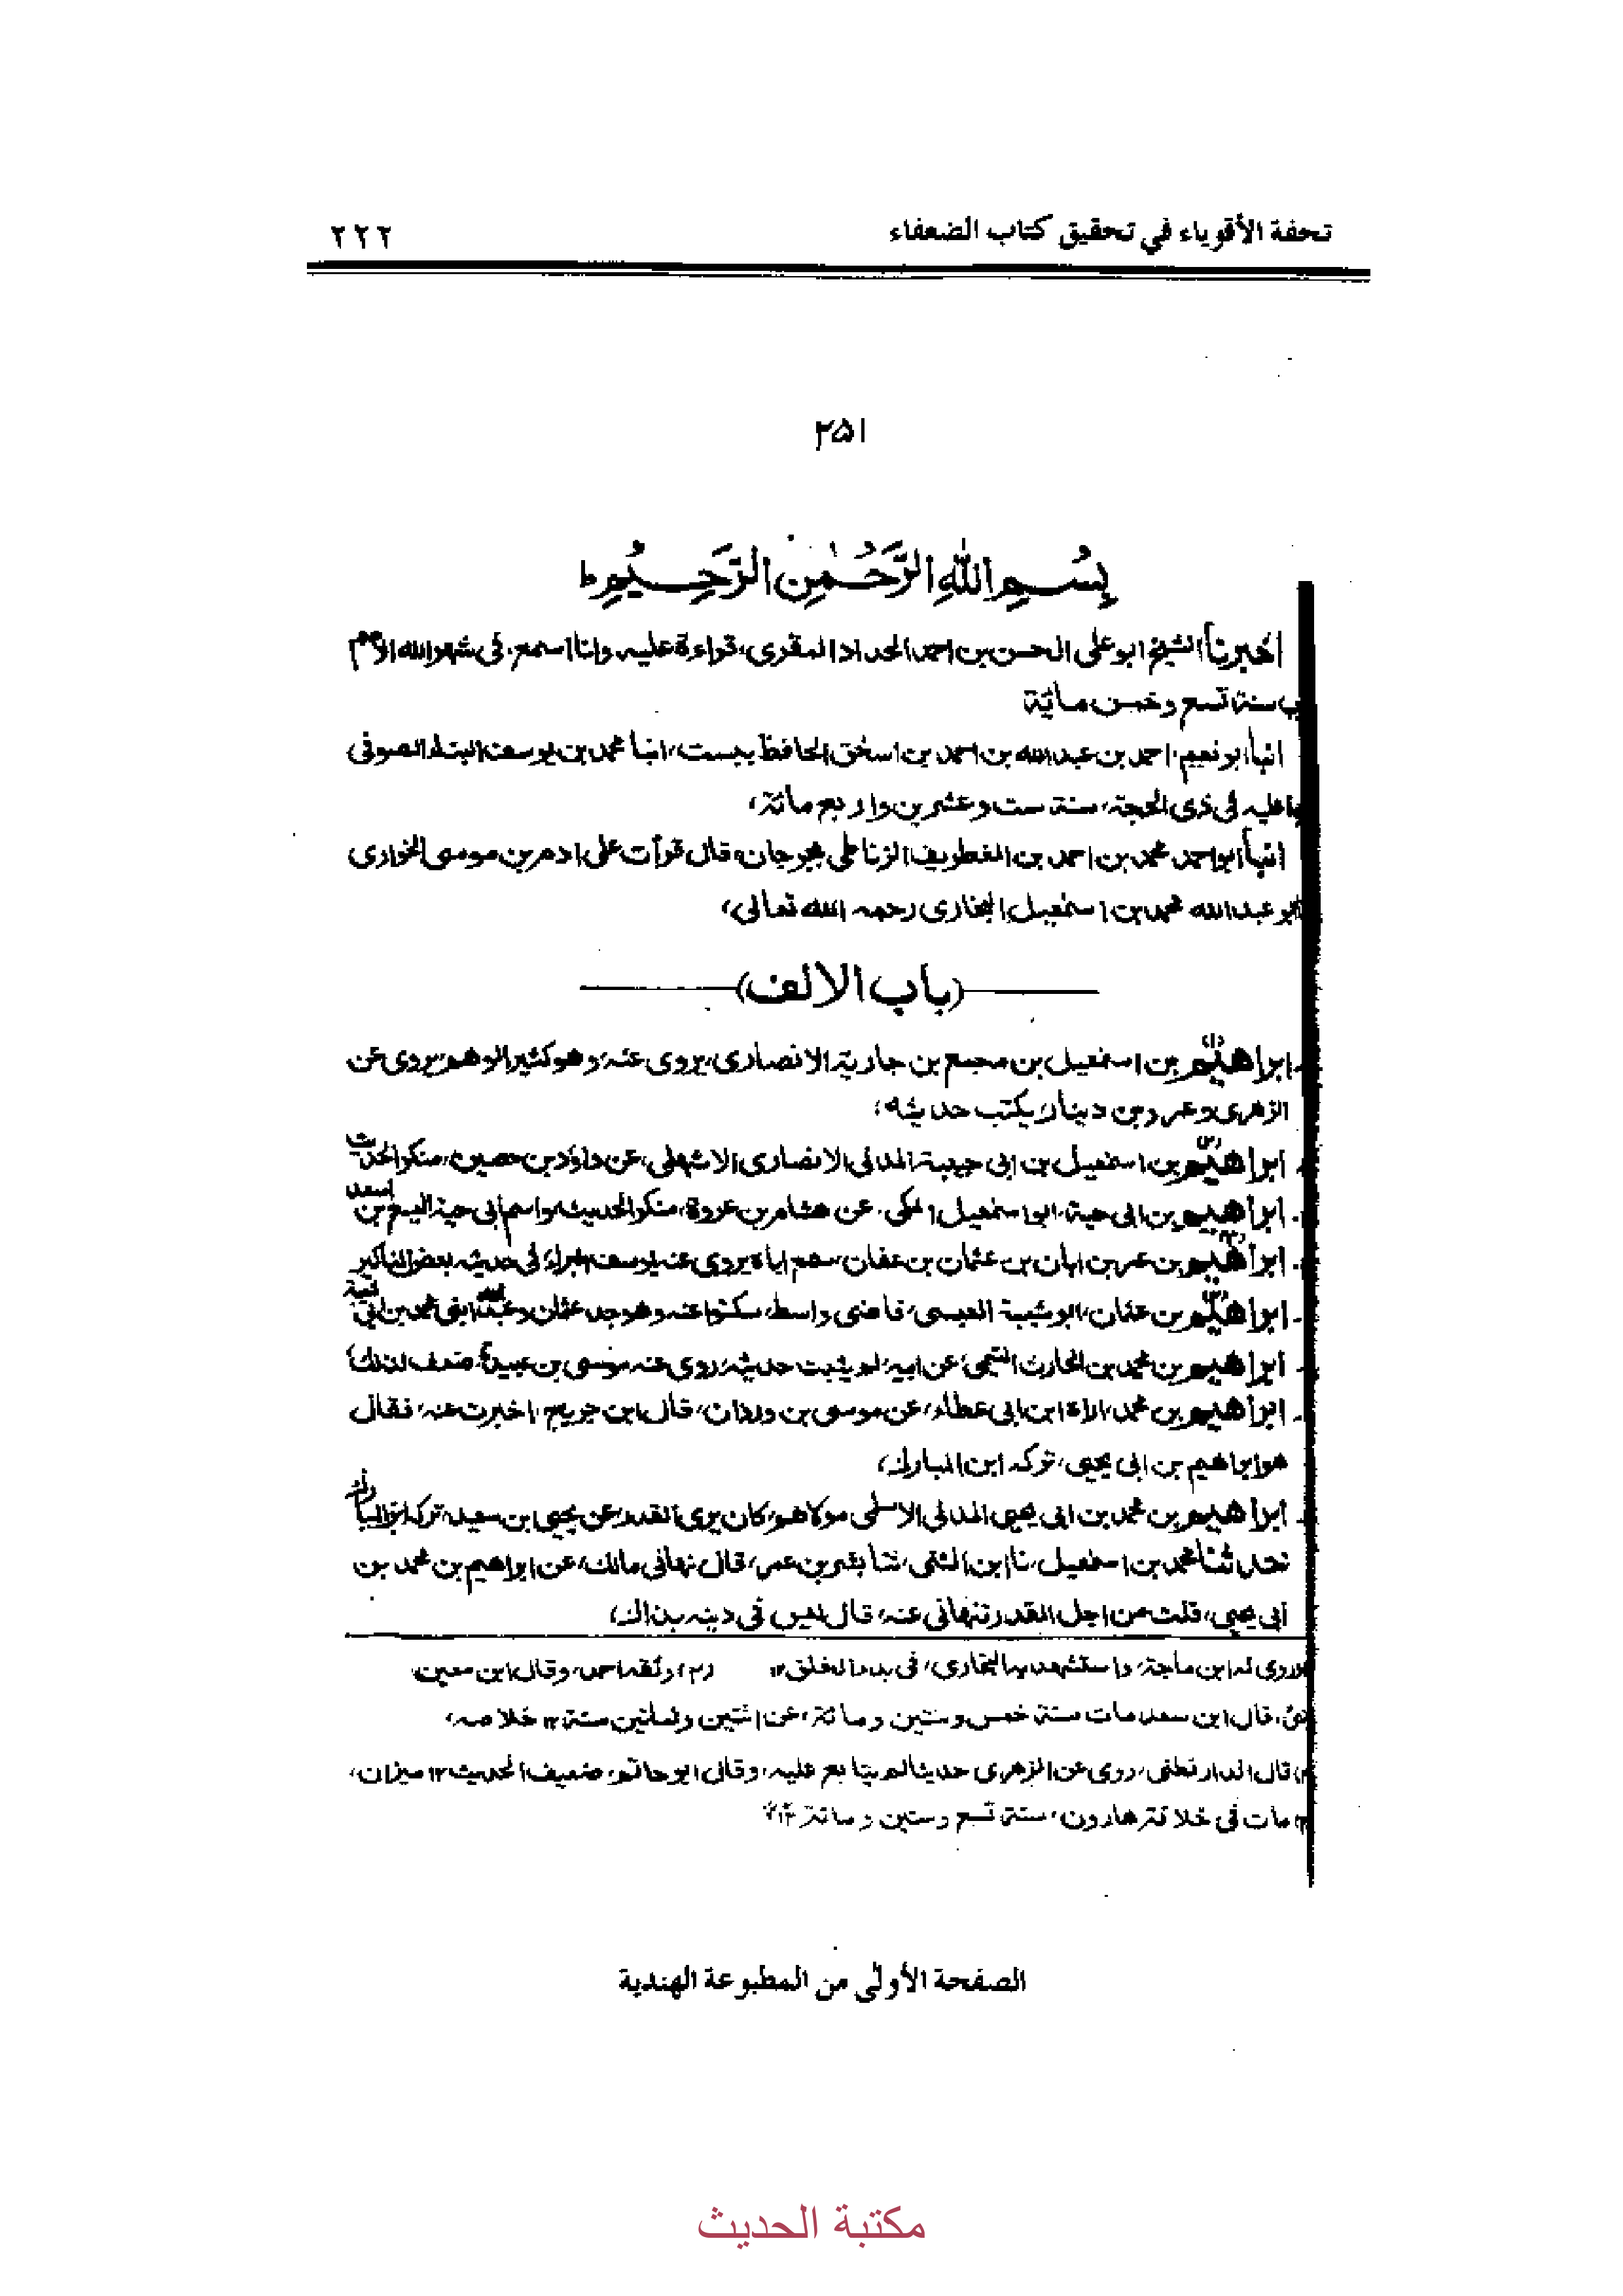 تحفة الأقوياء في تحقيق كتاب الضعفاء ٢٢٢
٢٥١
بِسْمِ اللهِ الرَّحْمٰنِ الرَّحِيْمِ
اخبرنا الشيخ ابو على الحسن بن احمد الحداد المقرى، قراءة عليه وانا اسمع، فى شهر الله الاصم
سنة تسع وخمس مائة
انبأ ابو نعيم، احمد بن عبد الله بن احمد بن اسحٰق الحافظ، انبا محمد بن يوسف البناء الصوفى
عليه فى ذى الحجة، سنة ست وعشرين واربع مائة،
انبأ ابو احمد محمد بن احمد بن الغطريف الزناطى بجرجان، قال قرأت على ادم بن موسى الخوارى
ابو عبد الله محمد بن اسمٰعيل البخارى رحمه الله تعالى،
(باب الالف)
ابراهيم (١) بن اسمٰعيل بن مجمع بن جارية الانصارى، يروى عنه، وهو كثير الوهم، يروى عن
الزهرى وعمرو بن دينار، يكتب حديثه،
ابراهيم (٢) بن اسمٰعيل بن ابى حبيبة المدنى الانصارى الاشهلى، عن داؤد بن حصين، منكر الحديث
ابراهيم بن ابى حية، ابو اسمٰعيل المكى، عن هشام بن عروة، منكر الحديث، واسم ابى حية اليسع بن اسعد
ابراهيم (٣) بن عمر بن ابان بن عثمان بن عفان، سمع اباه، يروى عنه يوسف البراء، فى حديثه بعض المناكير
ابراهيم (٤) بن عثمان، ابو شيبة العبسى، قاضى واسط، سكتوا عنه، وهو جد عثمان وعبد الله ابنى محمد بن ابى شيبة
ابراهيم بن محمد بن الحارث التيمى، عن ابيه، لم يثبت حديثه، روى عنه موسى بن عبيدة، ضعف لذلك،
ابراهيم بن محمد، اراه ابن ابى عطاء، عن موسى بن وردان، قال ابن جريج، اخبرت عنه، فقال
هو ابراهيم بن ابى يحيى، تركه ابن المبارك،
ابراهيم بن محمد بن ابى يحيى المدنى الاسلمى مولاهم، كان يرى القدر، عن يحيى ابن سعيد، تركه ابن المبارك
حدثنا محمد بن اسمٰعيل، نا ابن المثنى، ثنا بشر بن عمر، قال نهانى مالك، عن ابراهيم بن محمد بن
ابى يحيى، قلت من اجل القدر تنهانى عنه، قال ليس فى دينه بذاك،
روى له ابن ماجة، واستشهد به البخارى، فى بدء الخلق ١٢ (٢) وثقه احمد، وقال ابن معين،
قال ابن سعد مات سنة خمس وستين ومائة، عن اثنتين وثمانين سنة، ١٢ خلاصه،
قال الدارقطنى، روى عن الزهرى حديثا لم يتابع عليه، وقال ابو حاتم، ضعيف الحديث ١٢ ميزان،
مات فى خلافة هارون، سنة تسع وستين ومائة ١٢
الصفحة الأولى من المطبوعة الهندية
مكتبة الحديث